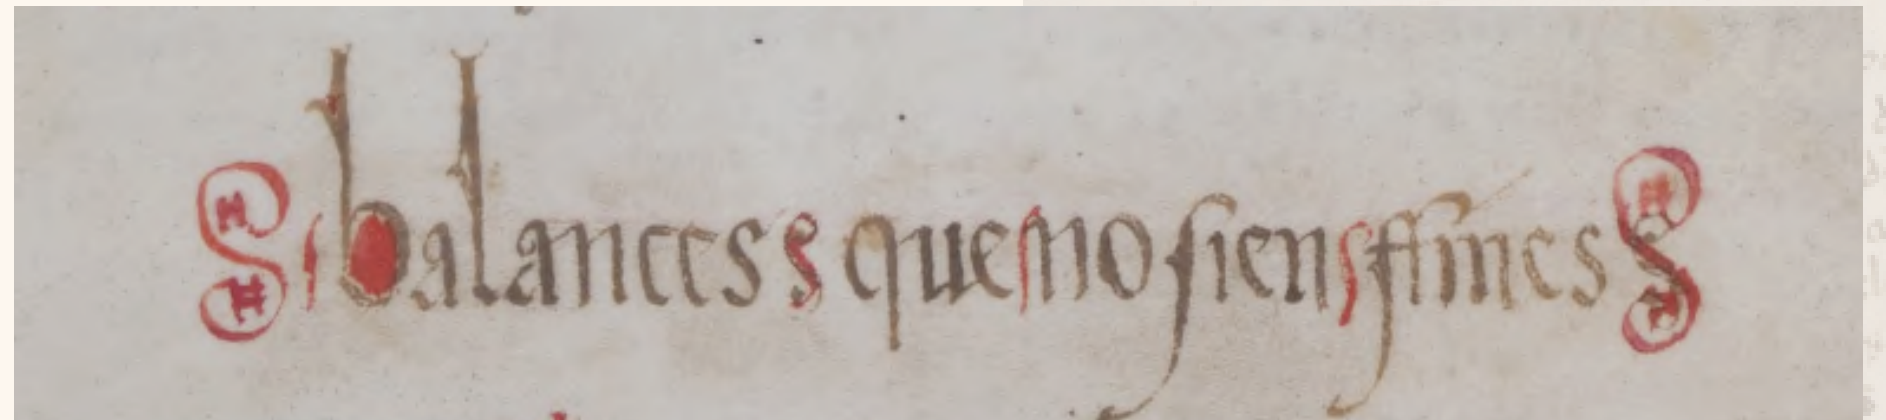 balances que no sien fines